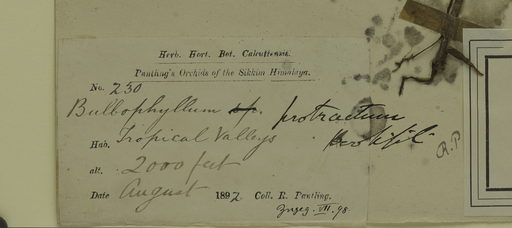 Herb. Hort. Bot. Calcuttensis.
Pantling's Orchids of the Sikkim Himalaya.
No. 230
Bulbophyllum sp. protractum
Hook. fil.
Hab. Tropical Valleys
alt. 2000 feet
Date August 1892 Coll. R. Pantling.
VII. 98
R.P